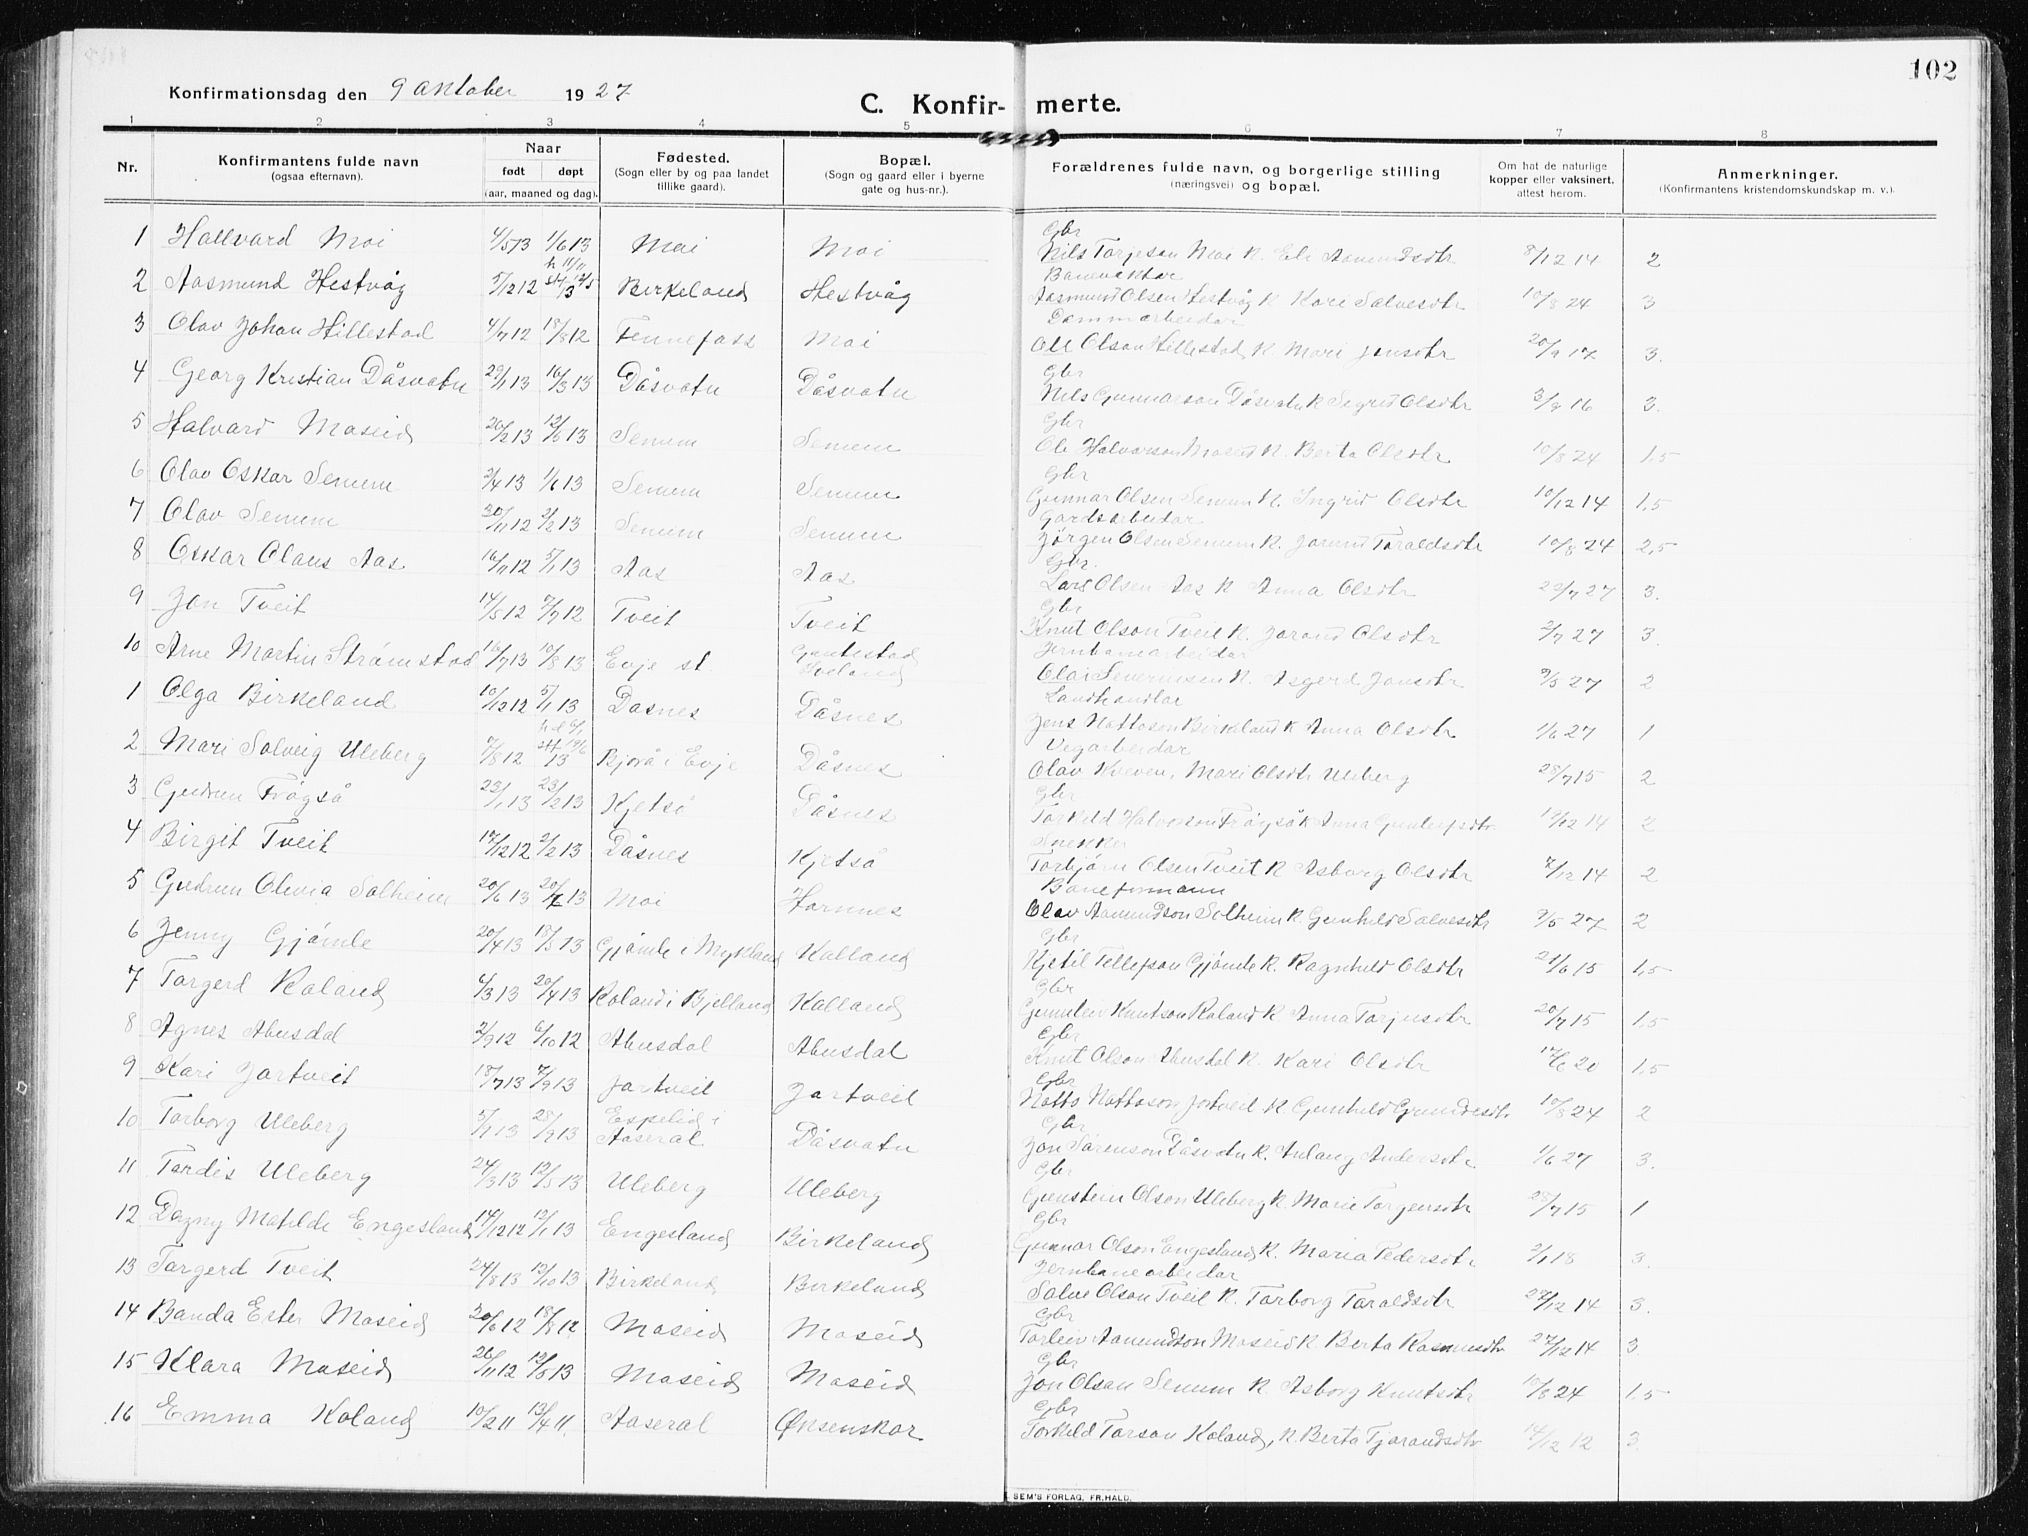 102
Konfirmationsdag den 9 oktober 1927
C. Konfir- merte.
1 2 3 4 5 6 7 8
Nr. Konfirmantens fulde navn (ogsaa efternavn). Naar født døpt (aar, maaned og dag). Fødested. (Sogn eller by og paa landet tillike gaard). Bopæl. (Sogn og gaard eller i byerne gate og hus-nr.). Forældrenes fulde navn, og borgerlige stilling (næringsvei) og bopæl. Om hat de naturlige kopper eller vaksinert, attest herom. Anmerkninger. (Konfirmantens kristendomskundskap m. v.).
Gbr
1 Hallvard Moi 4/5 13 1/6 13 Moi Moi Nils Torjeson Moi k. Eli Aamundsdtr 8/12 14 2
Banevaktar
2 Aasmund Hestvåg 5/12 12 Birkeland Hestvåg Aasmund Olsen Hestvåg k Kari Salvesdtr 10/8 24 3
Dammarbeidar
3 Olav Johan Hillestad 4/7 12 18/8 12 Fennefoss Moi Ole Olson Hillestad k Mari Jensdtr 20/9 17 3.
Gbr
4 Georg Kristian Dåsvatn 29/1 13 16/3 13 Dåsvatn Dåsvatn Nils Gunnarson Dåsvatn k Sigrid Olsdtr 3/8 16 3.
Gbr
5 Halvard Moseid 26/2 13 12/5 13 Senum Senum Ole Halvorson Moseid k. Berta Olsdtr 10/8 24 1,5
Gbr
6 Olav Oskar Senum 2/4 13 1/6 13 Senum Senum Gunnar Olsen Senum k. Ingrid Olsdtr 10/12 14 1,5
Gardsarbeidar
7 Olav Senum 30/11 12 2/2 13 Senum Senum Jørgen Olsen Senum k. Jorund Taraldsdtr 10/8 24 2,5
Gbr.
8 Oskar Olaus Aas 16/11 12 5/1 13 Aas Aas Lars Olsen Aas k Anna Olsdtr 22/7 27 3.
Gbr
9 Jon Tveit 14/5 12 7/7 12 Tveit Tveit Knut Olson Tveit k. Jorand Olsdtr 2/7 27 3.
Jernbanearbeidar
10 Arne Martin Strømstad 16/7 13 10/8 13 Evje st. Olai Severinsen k. Asgerd Jonsdtr 9/5 27 2
Landhandlar
1 Olga Birkeland 10/12 12 5/1 13 Dåsnes Dåsnes Jens Nottoson Birkeland k Anna Olsdtr 1/6 27 1
Vegarbeidar
2 Mari Solveig Uleberg 7/8 12 Bjorå i Evje Dåsnes Olav Kleven, Mari Olsdtr Uleberg 28/7 15 2
Gbr
3 Gudrun Frøgså 23/1 13 23/2 13 Kjetså Dåsnes Torkild Halvorson Frøgså k Anna Gunleifsdtr 17/12 14 2
Snekker
4 Birgit Tveit 17/12 12 2/2 13 Dåsnes Kjetså Torbjørn Olsen Tveit k Asborg Olsdtr 7/12 14 2
Baneformann
5 Gudrun Olivia Solheim 20/6 13 20/7 13 Moi Hornnes Olav Aamundson Solheim k. Gunhild Salvesdtr 9/5 27 2
Gbr
6 Jenny Gjømle 20/4 13 18/5 13 Gjømle i Mykland Kalland Kjetil Tellefson Gjømle k. Ragnhild Olsdtr 27/6 15 1,5
Gbr
7 Torgerd Røland 4/3 13 20/4 13 Roland i Bjelland Kalland Gunnleiv Knutson Røland k Anna Torjusdtr 20/7 15 1,5
Gbr
8 Agnes Abusdal 2/9 12 6/10 12 Abusdal Abusdal Knut Olson Abusdal k. Kari Olsdtr 17/6 20 1,5
Gbr
9 Kari Jortveit 18/7 13 7/9 13 Jortveit Jortveit Notto Nottoson Jortveit k Gunhild Gundesdtr 10/8 24 2
Gbr
10 Torborg Uleberg 28/9 13 Espelid i Aaseral Dåsvatn Jon Sørenson Dåsvatn k. Aslaug Andersdtr 1/6 27 3.
Gbr
11 Tordis Uleberg 24/3 13 12/5 13 Uleberg Uleberg Gunstein Olson Uleberg k. Marie Torgersdtr 28/7 15 1
Gbr
12 Dagny Matilde Engesland 14/12 12 12/1 13 Engesland Birkeland Gunnar Olson Engesland k. Maria Pedersdtr 2/1 18 3.
Jernbanearbeidar
13 Torgerd Tveit 24/8 13 12/10 13 Birkeland Birkeland Salve Olson Tveit k. Torborg Taraldsdtr 27/12 14 3.
Gbr
14 Banda Ester Moseid 20/6 12 18/8 12 Moseid Moseid Torleiv Aamundson Moseid k. Berta Rasmusdtr 27/12 14 3.
Gbr
15 Klara Moseid 26/11 12 12/5 13 Moseid Moseid Jon Olson Senum k. Asborg Knutsdtr 10/8 24 1,5
Gbr
16 Emma Røland 10/2 11 13/4 11. Aaseral Øksenskar Torkild Torson Røland, k. Berta Tjorandsdtr 14/12 12 3.
SEM'S FORLAG, FR.HALD.